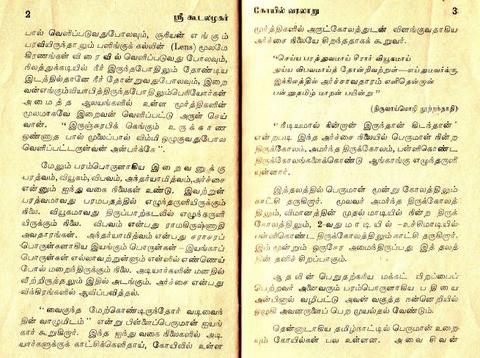 2
ஸ்ரீ கூடலழகர்
பால் வெளிப்படுவதுபோலவும், சூரியன் எங்கும்
பரவியிருந்தாலும் பளிங்குக்கல்லின் (Lens) மூலமே
கிரணங்கள் விரைவில் வெளிப்படுவது போலவும்,
நிலத்துக்கடியில் நீர் இருந்தபோதிலும் தோண்டிய
இடத்தில்தானே நீர் தோன்றுவதுபோலவும், இறை
வன்எங்கும்வியாபித்திருந்தபோதிலும்பெரியோர்கள்
அமைத்த ஆலயங்களில் உள்ள மூர்த்திகளின்
மூலமாகவே இறைவன் வெளிப்பட்டு அருள் செய்
வான். “ திருஞ்சரபிக் கெங்கும் உருக்காண
ஒண்ணாத பால் முலைப்பால் விம்மி ஒழுகுவதுபோல
வெளிப்பட்டருள்வன் அன்பர்க்கே ”
மேலும் பரம்பொருளாகிய இறைவனுக்கு
பரத்வம், வியூகம், விபவம், அந்தர்யாமித்வம், அர்ச்சை
என்னும் ஐந்து வகை நிலைகள் உண்டு. இவற்றுள்
பரத்வமாவது பரமபதத்தில் எழுந்தருளியிருக்கும்
நிலை. வியூகமாவது திருப்பாற்கடலில் எழுந்தருளி
யிருக்கும் நிலை. விபவம் என்பது ராமகிருஷ்ணாதி
அவதாரங்கள். அந்தர்யாமித்வம் என்பது சராசரப்
பொருள்களாகிய இயங்கும் பொருள்கள் - இயங்காப்
பொருள்கள் எல்லாவற்றுள்ளும் எள்ளில் எண்ணெய்
போல் மறைந்திருக்கும் நிலை. அடியார்களின் மனதில்
வீற்றிருத்தலும் இதில் அடங்கும். அர்ச்சை என்பது
விக்கிரகங்களில் ஆவிப்பவித்தல்.
“ வைகுந்த மேற்கொண்டிருந்தோர் வடிவைந்
தின் வாழுமிடம் ” என்று பிள்ளைப்பெருமாள் ஐயங்
கார் கூறுகிறார். இந்த ஐந்து வகை நிலைகளில் அடி
யவர்களுக்குக் காட்சிக்கெளிதாய், கோயிலில் உள்ள
கோயில் வரலாறு
3
மூர்த்திகளில் அருட்கோலத்துடன் விளங்குவதாகிய
அர்ச்சை நிலையே சிறந்ததாகக் கூறுவர்.
“ செய்ய பரத்துவமாய்ச் சீரார் வியூகமாய்
அய்ய விபவமாய்த் தோன்றிவற்றுள்—எய்துமவர்க்கு
இந்நிலத்தில் அர்ச்சாவதாரம் எளிதென்றான்
பன்னுதமிழ் மாறன் பயின்று ”
(திருவாய்மொழி நூற்றந்தாதி)
“ நீடியமால் கின்றான் இருந்தான் கிடந்தான் ”
என்றபடி இந்த அர்ச்சை நிலையில் பெருமாள் நின்ற
திருக்கோலம், அமர்ந்த திருக்கோலம், பள்ளிகொண்ட
திருக்கோலங்களைக்கொண்டு ஆங்காங்கு எழுந்தருளி
யுள்ளார்.
இத்தலத்தில் பெருமாள் மூன்று கோலத்திலும்
காட்சி தருகிறார். மூலவர் அமர்ந்த திருக்கோலத்
திலும், விமானத்தின் முதல் மாடியில் நின்ற திருக்
கோலத்திலும், 2-வது மாடியில் -உச்சிமாடியில்
பள்ளிகொண்ட திருக்கோலத்திலும்காட்சி தருகிறார்.
இம் மூன்றும் ஒருசேர அமைந்திருப்பது இத் தலத்
தின் தனிச் சிறப்பாகும்.
ஆதலின் பெறுதற்கரிய மக்கட் பிறப்பைப்
பெற்றவர் அனைவரும் பரம்பொருளாகிய பதியை
அன்பினால் வழிபட்டு அவன் வகுத்த நன்னெறியில்
நின்று அவனருளைப் பெற முயல்தல் வேண்டும்.
தென்னாடாகிய தமிழ்நாட்டில் பெருமான் உறை
யும் கோயில்கள் பல உள்ளன. அவை சிவன்,